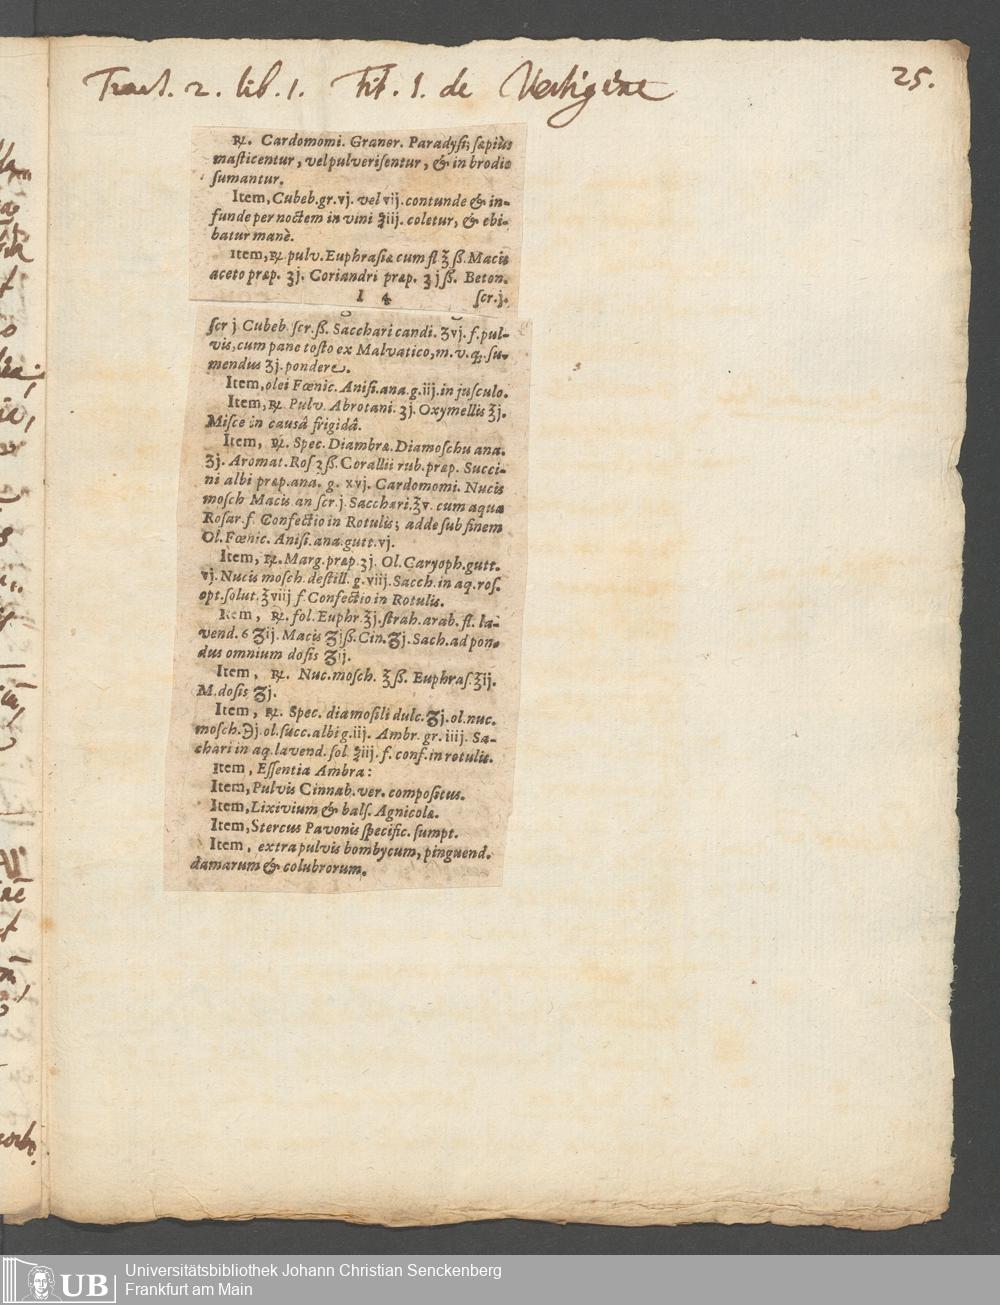 Tract. 2. lib. 1. Tit. 1. de Vertigine
25.
℞. Cardomomi. Graner. Paradysi; sæpiùs
masticentur, vel pulverisentur, & in brodio
sumantur.
Item, Cubeb. gr. vj. vel vij. contunde & in-
funde per noctem in vini ℥iij. coletur, & ebi-
batur manè.
Item, ℞ pulv. Euphrasiæ cum fl ℥ß. Macis
aceto præp. ʒj. Coriandri præp. ʒjß. Beton.
I 4 scr. j.
scr j Cubeb. scr. ß. Sacchari candi. ℥vj. f. pul-
vis, cum pane tosto ex Malvatico, m. v. q. su-
mendus ℥j. pondere.
Item, olei Fœnic. Anisi. ana. g. iij. in jusculo.
Item, ℞ Pulv. Abrotani. ʒj. Oxymellis ℥j.
Misce in causâ frigidâ.
Item, ℞. Spec. Diambræ. Diamoschu ana.
℥j. Aromat. Ros ʒß. Corallii rub. præp. Succi-
ni albi præp. ana. g. xvj. Cardomomi. Nucis
mosch Macis. an scr. j. Sacchari. ℥v. cum aqua
Rosar. f. Confectio in Rotulis; adde sub finem
Ol. Fœnic. Anisi. ana. gutt. vj.
Item, ℞. Marg. præp. ʒj. Ol. Caryoph. gutt.
vj. Nucis mosch. destill. g. viij. Sacch. in aq. ros.
opt. solut. ℥viij f. Confectio in Rotulis.
Item, ℞. fol. Euphr. ℥j. strah. arab. fl. la-
vend. 6 ʒij. Macis ʒjß. Cin. ʒj. Sach. ad pon-
dus omnium dosis ʒij.
Item, ℞. Nuc. mosch. ℥ß. Euphras. ℥ij.
M. dosis ʒj.
Item, ℞. Spec. diamosili dulc. ʒj. ol. nuc.
mosch. ℈j. ol. succ. albi g. iij. Ambr. gr. iiij. Sa-
chari in aq. lavend. sol. ℥iij. f. conf. in rotulis.
Item, Essentia Ambra:
Item, Pulvis Cinnab. ver. compositus.
Item, Lixivium & bals. Agnicolæ.
Item, Stercus Pavonis specific. sumpt.
Item, extra pulvis bombycum, pinguend.
damarum & colubrorum.
UB
Universitätsbibliothek Johann Christian Senckenberg
Frankfurt am Main